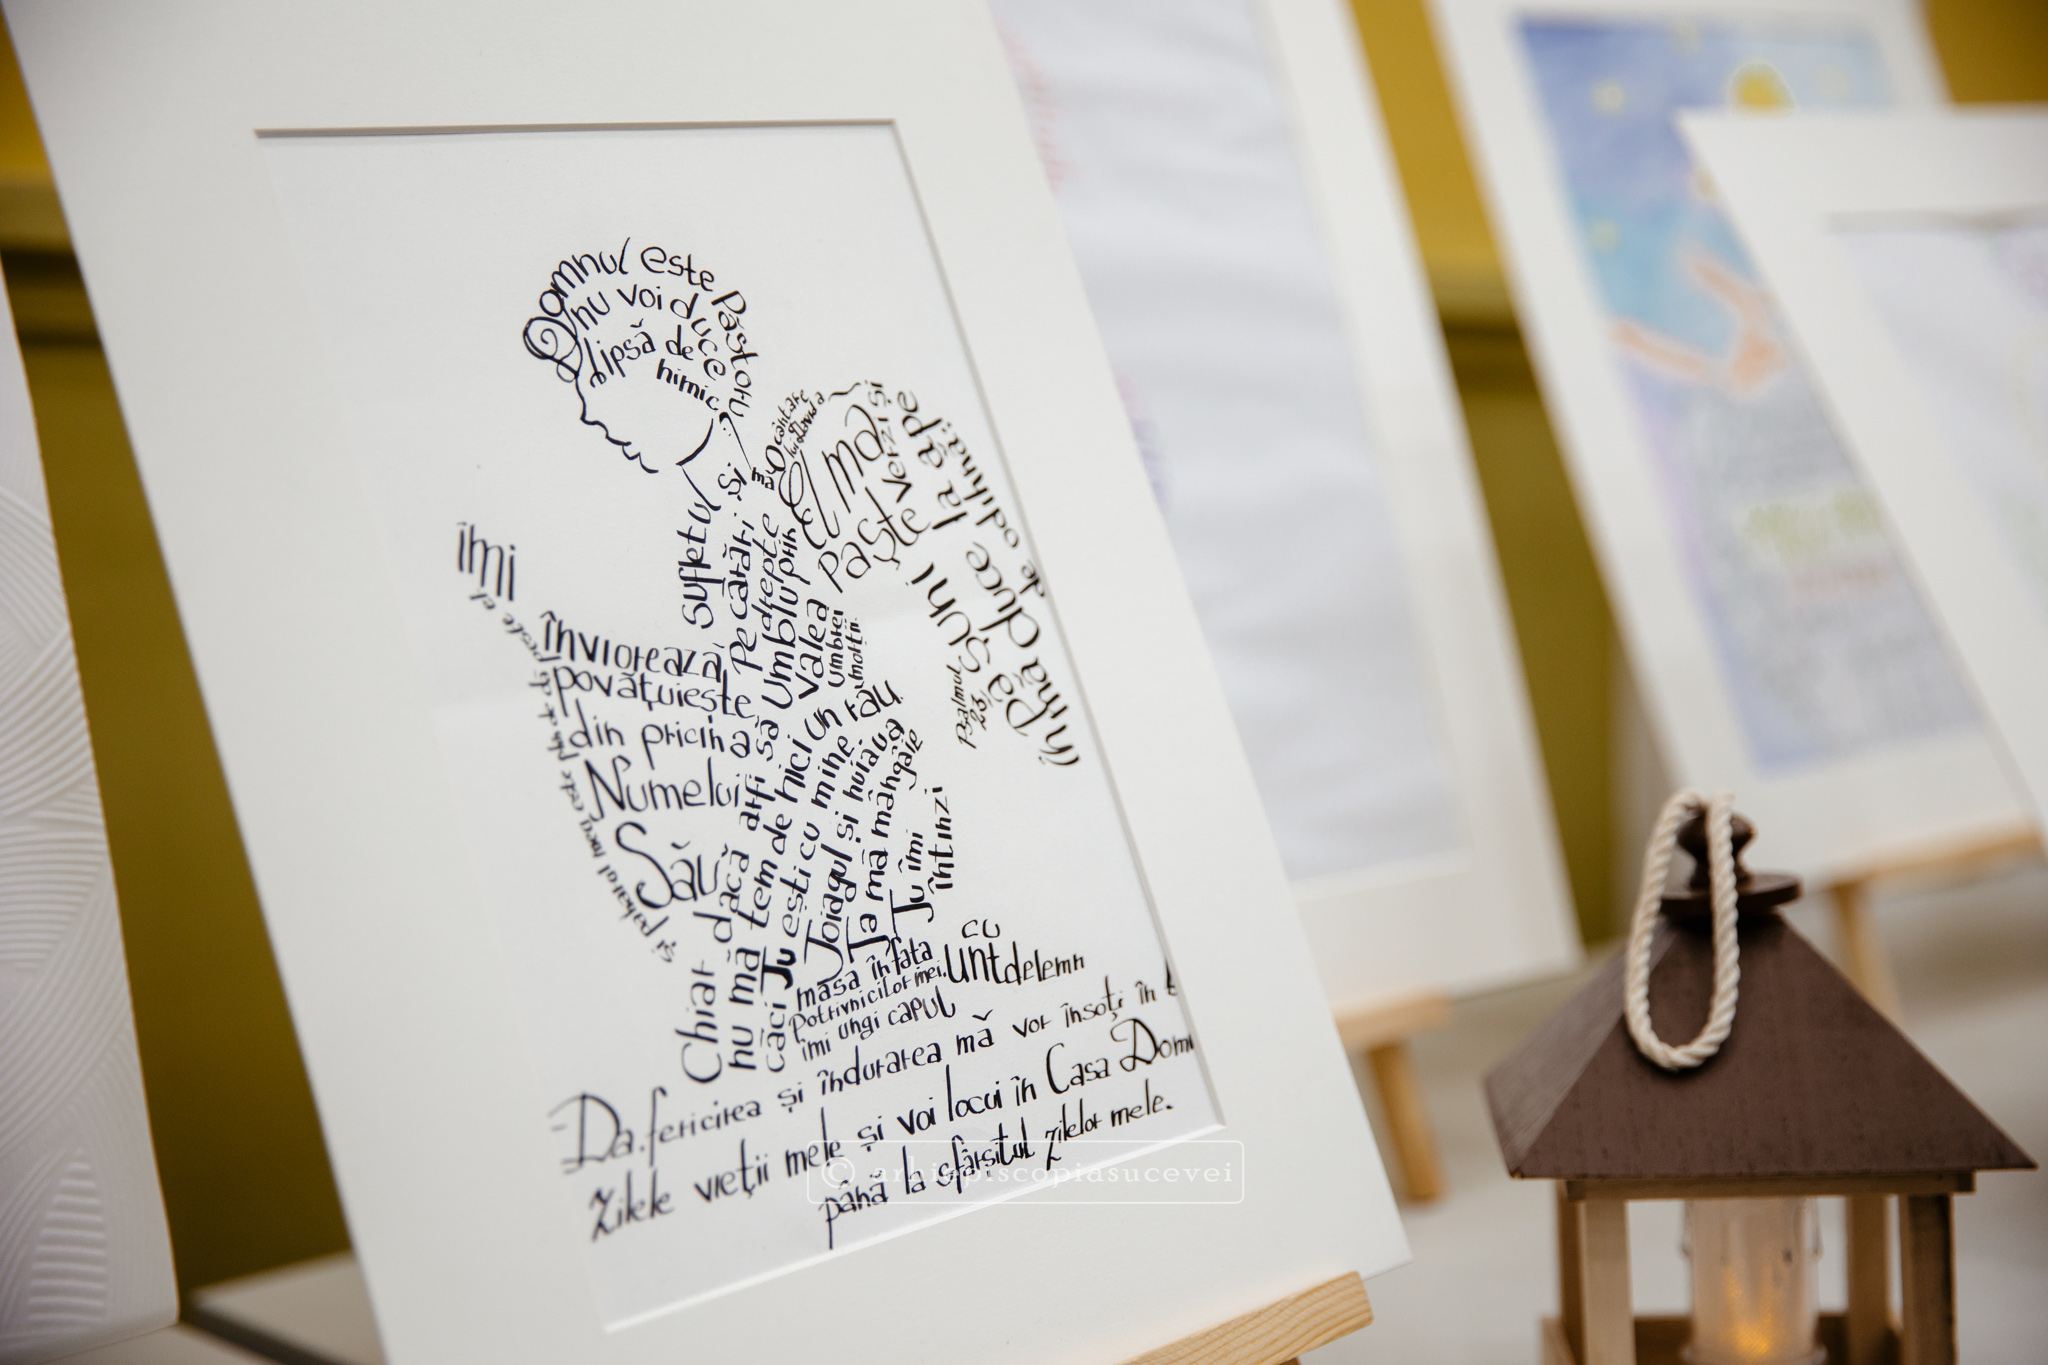 Domnul este Păstorul
nu voi duce
lipsă de
nimic.
O cântare
lui David
El mă
paște
verzi și
în Pășuni
mă duce la ape
de odihnă;
Psalmul
23
îmi
înviorează
Sufletul
Și
mă
povățuiește
Pe cărări
drepte
din pricina
Numelui
Său
Chiar dacă ar fi să Umblu prin
valea
Umbrei
morții
nu mă tem de nici un rău
căci Tu ești cu mine
Toiagul și nuiaua
Ta mă mângâie
Tu îmi
întinzi
masa în fața
potrivnicilor mei.
îmi ungi capul
cu
untdelemn
și paharul meu este plin de dă peste el
Da. fericirea și îndurarea mă vor însoți în
zilele vieții mele și voi locui în Casa
până la sfârșitul zilelor mele.
© arhiepiscopiasucevei